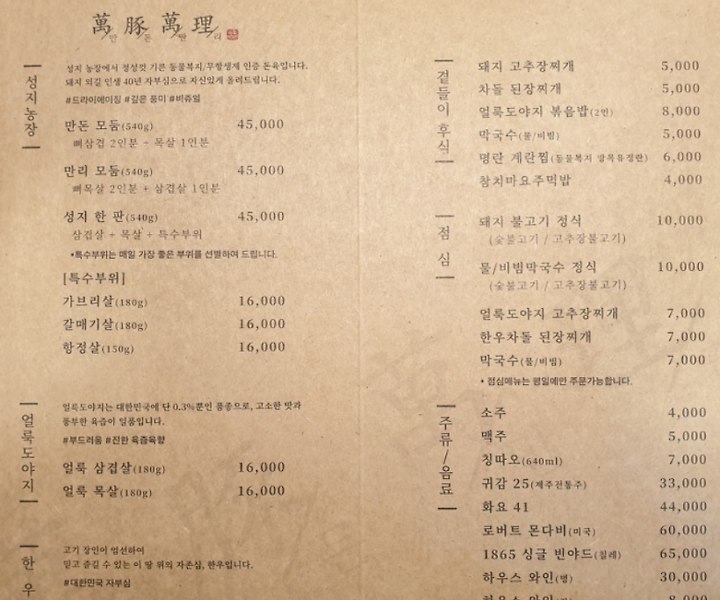 萬豚萬理
만돈만리
성지농장
성지 농장에서 정성껏 기른 동물복지/무항생제 인증 돈육입니다.
돼지 외길 인생 40년 자부심으로 자신있게 올려드립니다.
#드라이에이징 #깊은 풍미 #비쥬얼
만돈 모둠(540g) 45,000
뼈삼겹 2인분 + 목살 1인분
만리 모둠(540g) 45,000
뼈목살 2인분 + 삼겹살 1인분
성지 한 판(540g) 45,000
삼겹살 + 목살 + 특수부위
•특수부위는 매일 가장 좋은 부위를 선별하여 드립니다.
[특수부위]
가브리살(180g) 16,000
갈매기살(180g) 16,000
항정살(150g) 16,000
얼룩도야지
얼룩도야지는 대한민국에 단 0.3%뿐인 품종으로, 고소한 맛과
풍부한 육즙이 일품입니다.
#부드러움 #진한 육즙육향
얼룩 삼겹살(180g) 16,000
얼룩 목살(180g) 16,000
한우
고기 장인이 엄선하여
믿고 즐길 수 있는 이 땅 위의 자존심, 한우입니다.
#대한민국 자부심
곁들이 후식
돼지 고추장찌개 5,000
차돌 된장찌개 5,000
얼룩도야지 볶음밥(2인) 8,000
막국수(물/비빔) 5,000
명란 계란찜(동물복지 방목유정란) 6,000
참치마요주먹밥 4,000
점심
돼지 불고기 정식 10,000
(숯불고기 / 고추장불고기)
물/비빔막국수 정식 10,000
(숯불고기 / 고추장불고기)
얼룩도야지 고추장찌개 7,000
한우차돌 된장찌개 7,000
막국수(물/비빔) 7,000
• 점심메뉴는 평일에만 주문가능합니다.
주류/음료
소주 4,000
맥주 5,000
칭따오(640ml) 7,000
귀감 25(제주전통주) 33,000
화요 41 44,000
로버트 몬다비(미국) 60,000
1865 싱글 빈야드(칠레) 65,000
하우스 와인(병) 30,000
하우스 와인